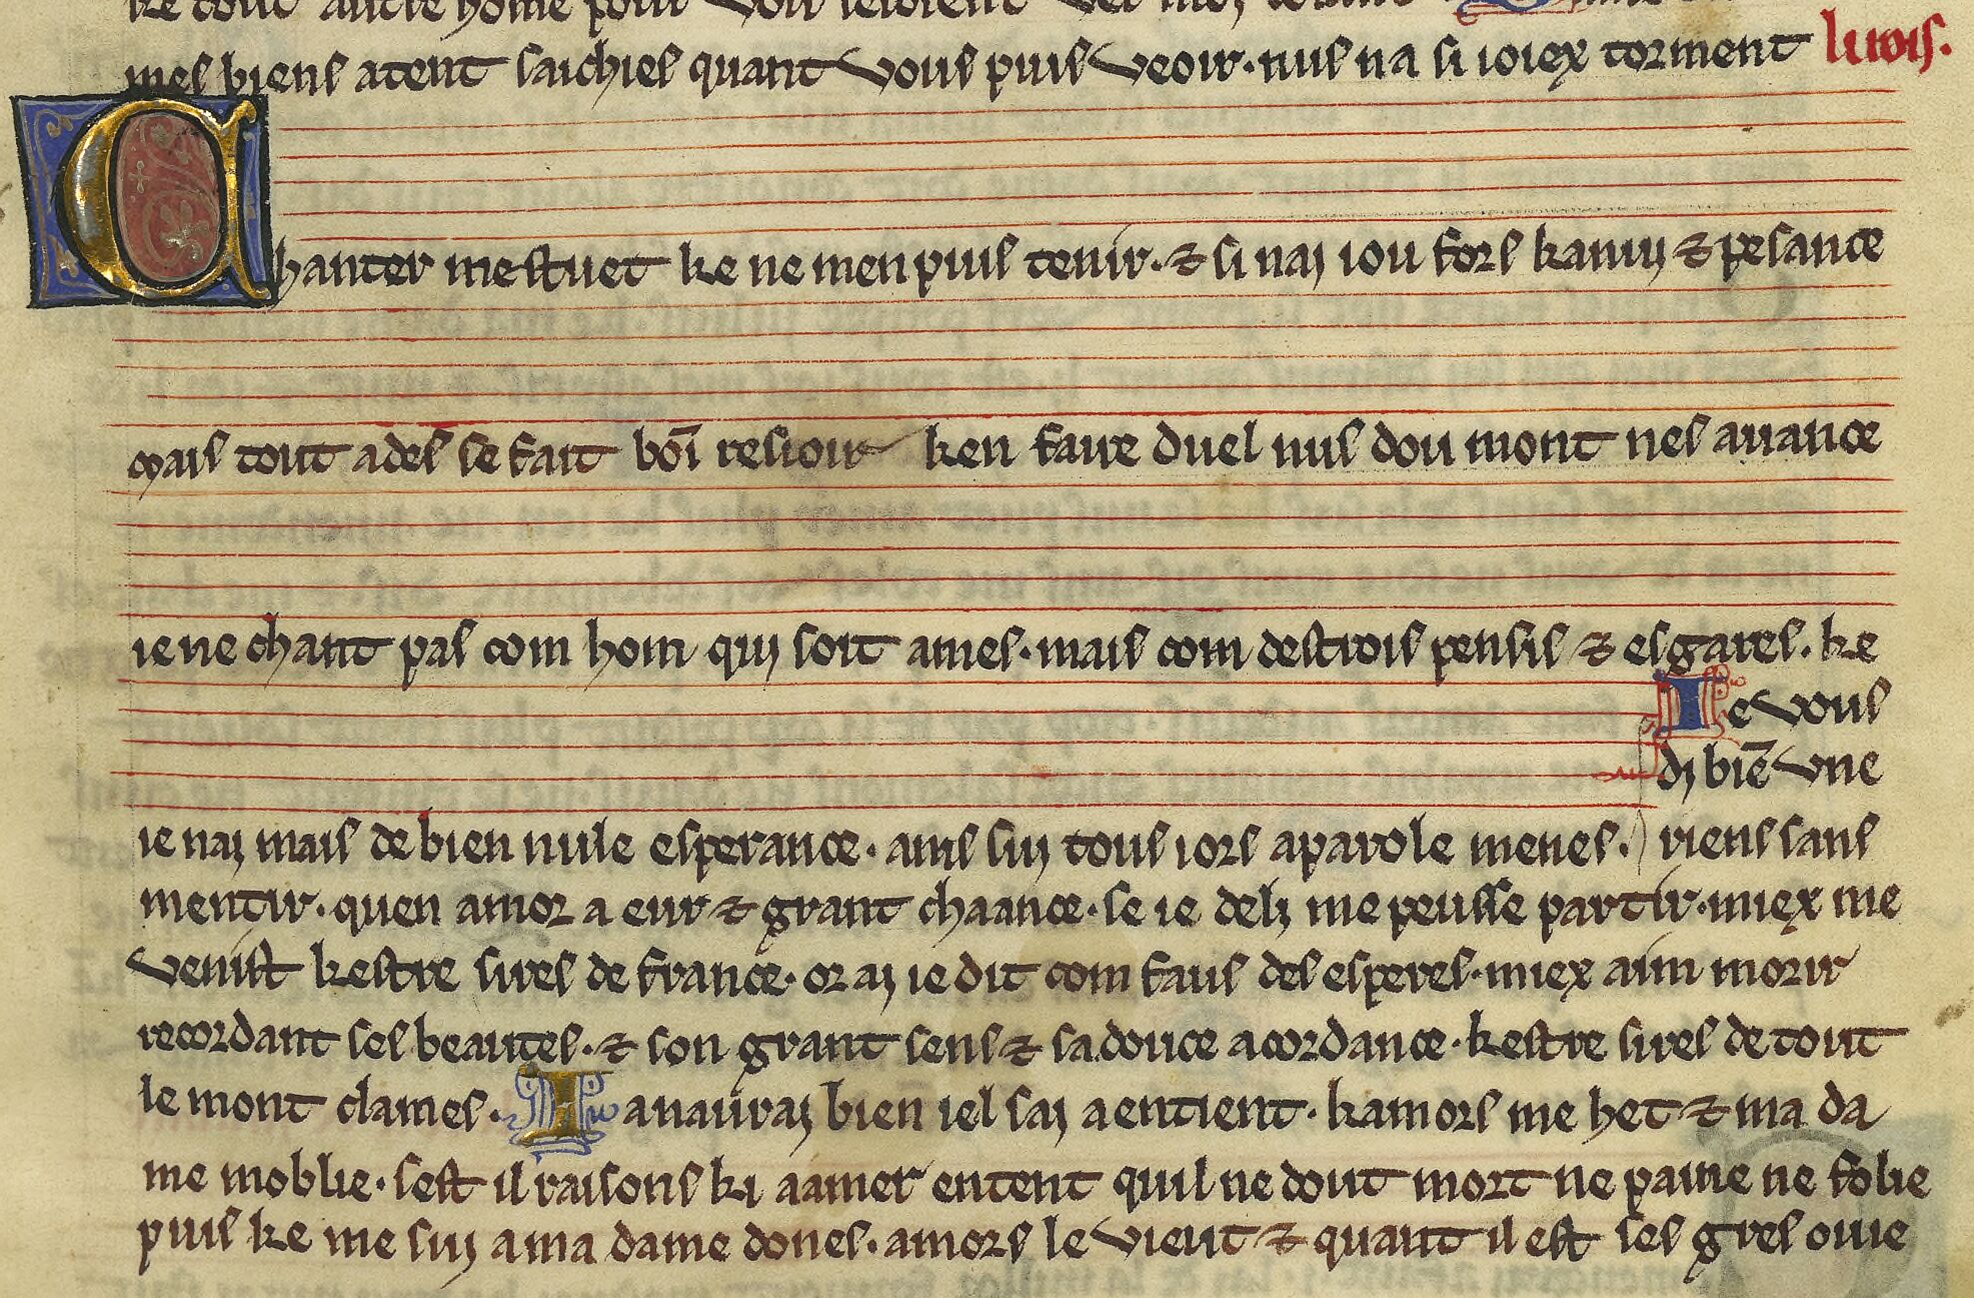 ke tout autre home pour voir seroient
mes biens atent saichies quant vous puis veoir · nus na si ioiex torment li rois.
Chanter mestuet ke ne men puis tenir · ⁊ si nai iou fors kanuy ⁊ pesance
mais tout ades se fait bōi resioir ken faire duel nus dou mont nes auance
ie ne chant pas com hom qui soit ames · mais com destrois pensis ⁊ esgares. ke
ie nai mais de bien nule esperance · ains sui tous iors aparole menes.
Ie vous
di biē vne
riens sans
mentir · quen amor a eur ⁊ grant chaance · se ie deli me peusse partir · miex me
venist kestre sires de france · or ai ie dit com faus desesperes · miex aim morir
recordant ses beautes · ⁊ son grant sens ⁊ sa douce acordance · kestre sires de tout
le mont clames · Ia naurai bien iel sai aentient · kamors me het ⁊ ma da
me moblie · sest il raisons ki aamer entent quil ne dout mort ne paine ne folie
puis ke me sui ama dame dones · amors le vieut ⁊ quant il est ses gres ouie